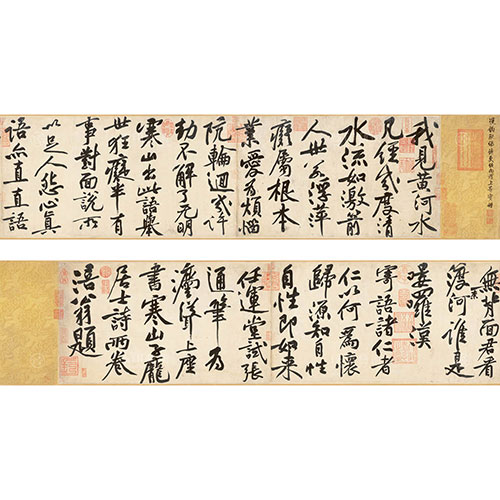 我見黃河水
凡經幾度清
水流如激箭
人世若浮萍
癡屬根本
業愛為煩惱
阬輪迴幾許
劫不解了无明
寒山出此語舉
世狂癡半有
事對面說所
以足人怨心真
語亦直直語
無背面君看
渡奈河誰是
嘍囉漢
寄語諸仁者
仁以何為懷
歸源知自性
自性即如来
任運堂試張
通筆為
灋聳上座
書寒山子龐
居士詩兩卷
涪翁題